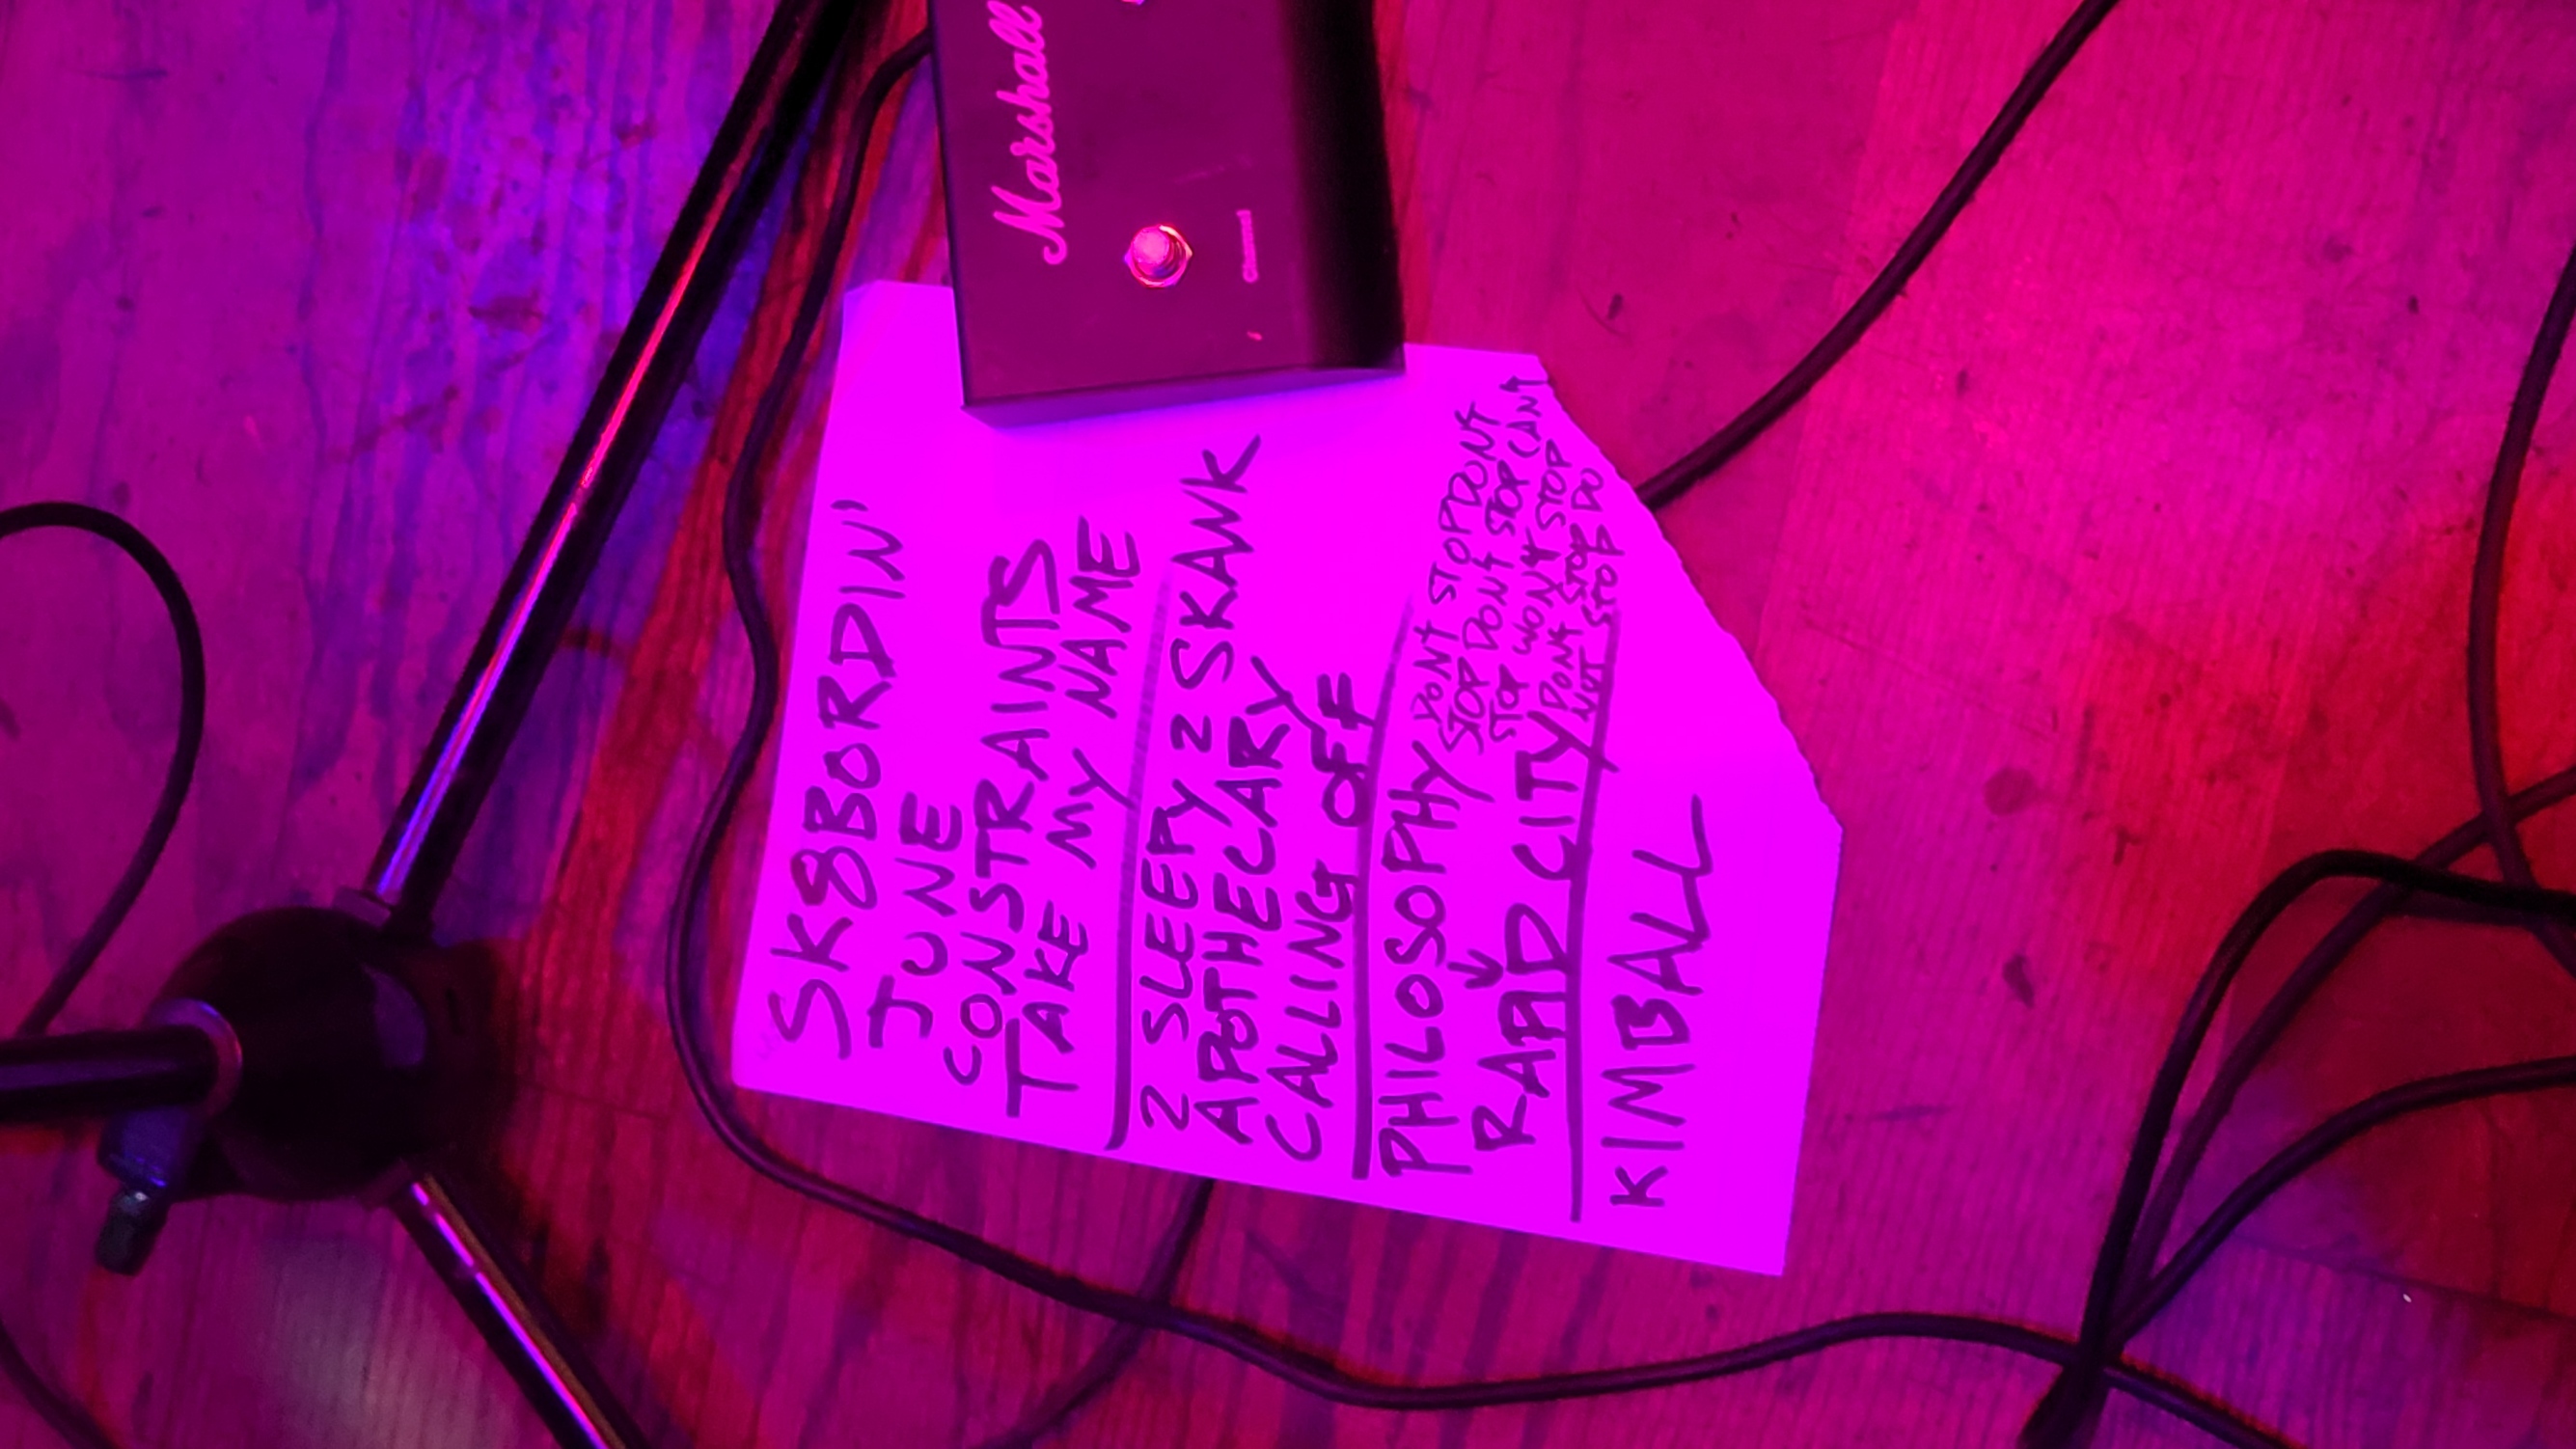 Marshall
Channel
SK8BORDIN'
JUNE
CONSTRAINTS
TAKE MY NAME
2 SLEEPY 2 SKANK
APOTHECARY
CALLING OFF
PHILOSOPHY
RAPID CITY
DONT STOP DONT
STOP DONT STOP CANT
STOP WONT STOP
DONT STOP DO
NOT STOP
KIMBALL